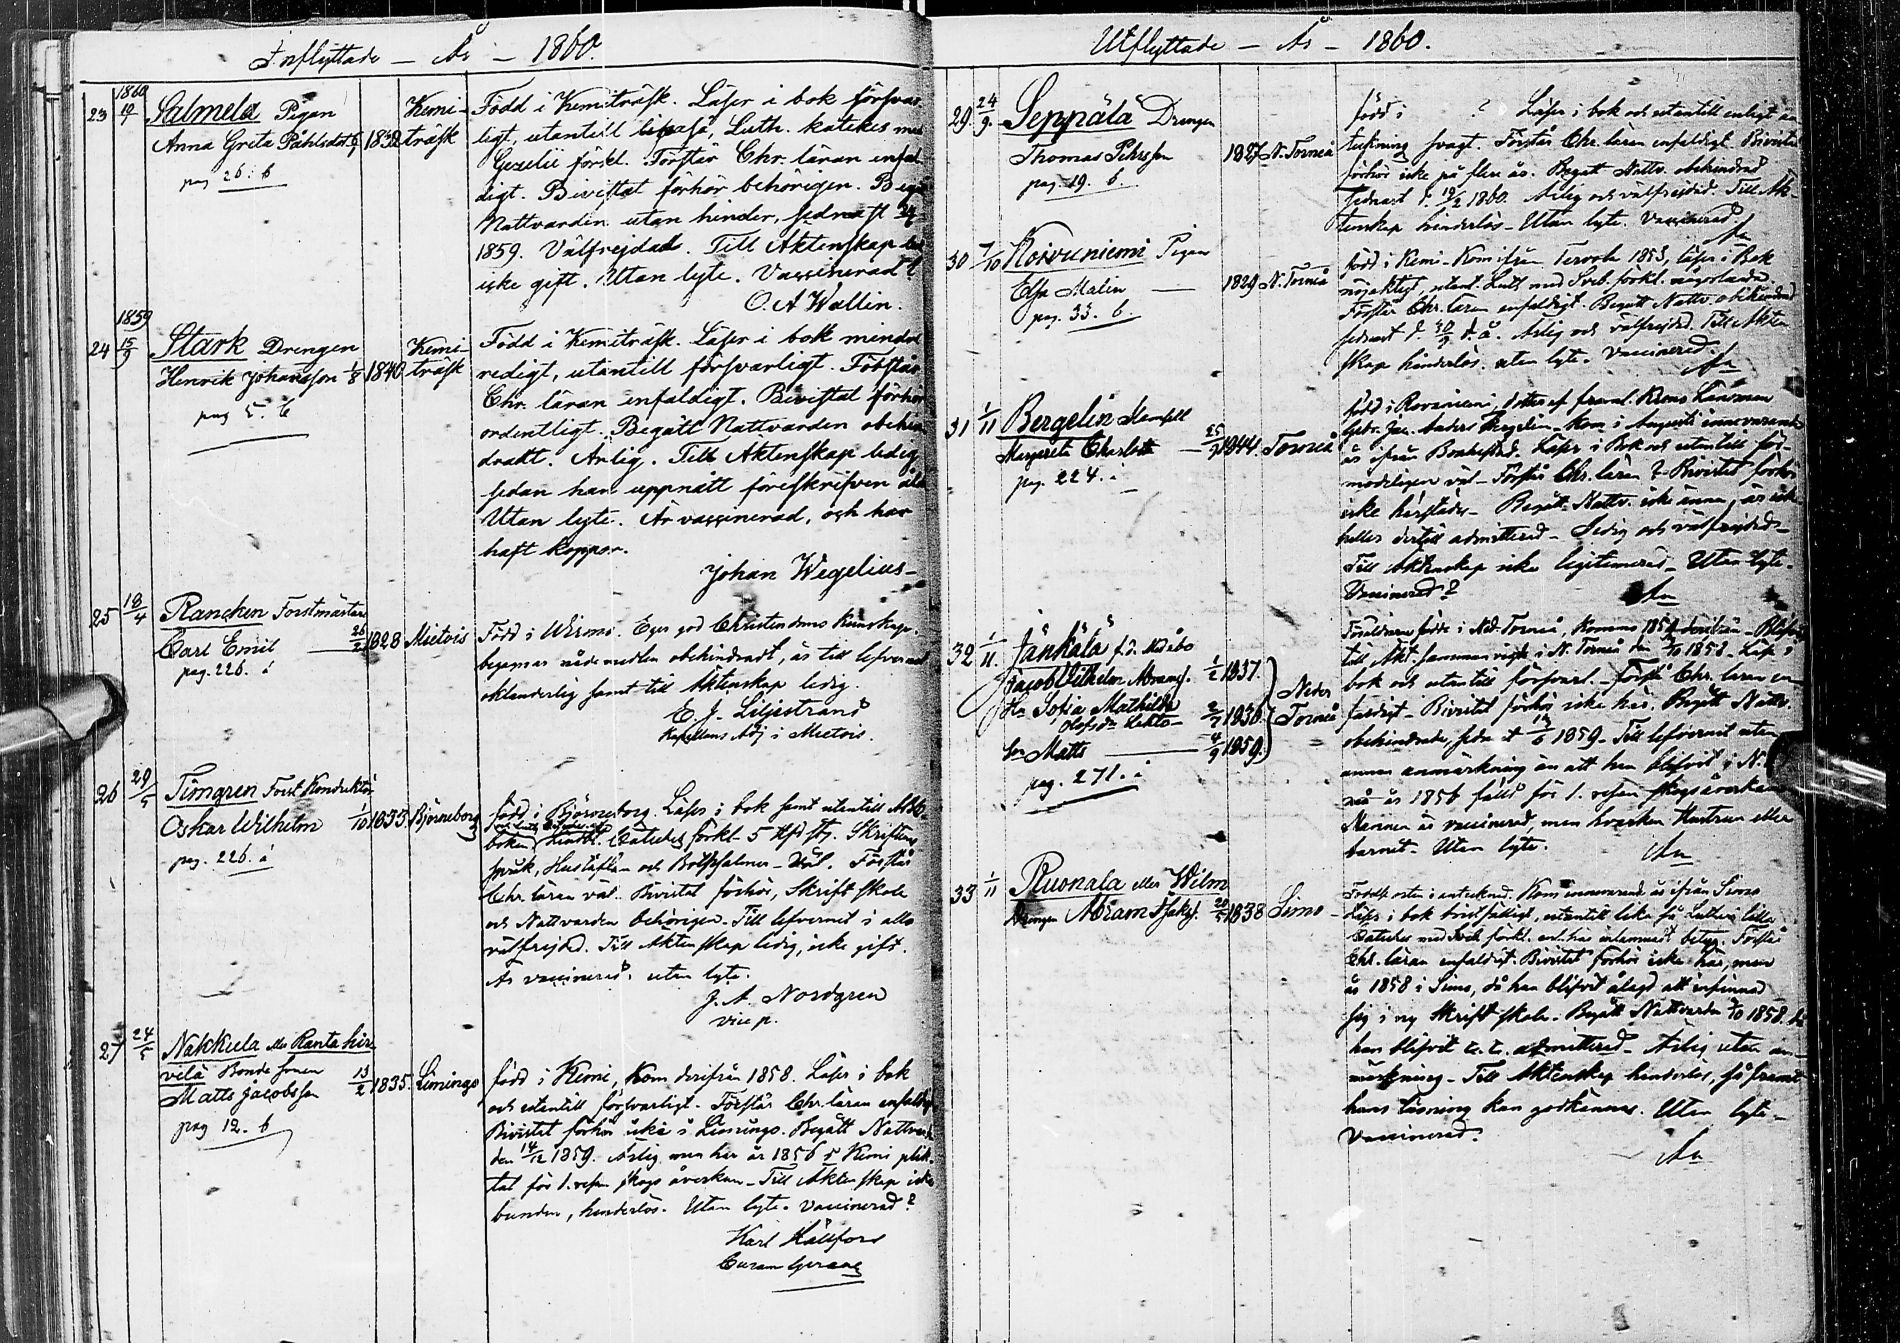 Inflyttade – År – 1860.
23 1860 19/7 Salmela Pigan
Anna Greta Påhlsdot. 1832
pag 26. b
Kemi-
träsk
Född i Kemiträsk. Läser i bok försvar-
ligt, utantill Luth. katekes med
Gezelii förkl. Förstår Chr. läran enfal-
digt. Bevistat förhör behörigen. Beg.
Nattvarden utan hinder, sednast
1859. Välfrejdad. Till Äktenskap
icke gift. Utan lyte. Vaccinerad
O. A Wallin.
24 1859 15/9 Stark Drengen
Henrik Johansson 1/8 1840
pag 5. b
Kemi-
träsk
Född i Kemiträsk. Läser i bok mindre
redigt, utantill försvarligt. Förstår
Chr. läran enfaldigt. Bevistat förhör
ordentligt. Begått Nattvarden obehin-
dradt. Ärlig. Till Äktenskap ledig
sedan han uppnått föreskrifven ålder
Utan lyte. Är vaccinerad, och har
haft koppor.
Johan Wegelius
25 18/4 Rancken Forstmästare
Carl Emil 26/2 1828 Mietois
pag. 226. á
Född i Wirmo. Eger god Christendoms kunskap.
begagnar nådemedlen obehindradt, är till lefvernet
oklanderlig samt till Äktenskap ledig.
E. J. Liljestrand
Kapellans Adj. i Mietois.
26 29/5 Timgren Forst Konduktör
Oskar Wilhelm 1/10 1833 Björneborg
pag. 226. á
född i Björneborg. Läser i bok samt utantill Abc-
boken Cateches förkl. 5 Skriftens
språk, Hustaflan och Botpsalmer Väl. Förstår
Chr. läran väl. Bivistat förhör, Skriftskola
och Nattvarden behörigen. Till lefvernet i allo
välfrejdad. Till Äktenskap ledig, icke gift.
Är vaccinerad. utan lyte.
J. A. Nordgren
vice p.
27 24/5 Nakkula eller Rantahir-
velä Bonde sonen
Matts Jacobsson 13/2 1835. Limingo
pag 12. b
född i Kemi, kom derifrån 1858. Läser i bok
och utantill försvarligt. Förstår Chr. läran enfaldigt
Bivistat förhör icke i Limingo. Begått Nattvard
den 14/12 1859. Ärlig men har år 1856 i Kemi plik-
tat för 1. resan skogs åverkan. Till Äktenskap icke
bunden, hinderlös. Utan lyte. Vaccinerad?
Karl Källfors
Curam gerens
Utflyttade – År – 1860.
29. 24/9. Seppälä Drengen
Thomas Pehrsson 1827 N. Torneå
pag. 19. b.
född i ? Läser i bok och utantill enligt an-
teckning svagt. Förstår Chr. läran enfaldigt. Bivistat
förhör icke på flere år. Begått Nattv. obehindrad
sednast d. 19/2 1860. Ärlig och välfrejdad. Till Äk-
tenskap hinderlös. Utan lyte. Vaccinerad.
30 7/10 Koivuniemi Pigan
Elsa Malin 1829 N. Torneå
pag. 33. b.
född i Kemi. Kom ifrån Tervola 1853, läser i Bok
utant. Luth. med Sveb. förkl. någorlunda
Förstår Chr. läran enfaldigt. Begått Nattv. obehindrad
sednast d. 30/9 d. å. Ärlig och välfrejdad. Till Äkten-
skap hinderlös. utan lyte. Vaccinerad.
31 1/11 Bergelin Mamsell
Margareta Charlotta 25/9 1844 Torneå
pag. 224. á
född i Rovaniemi, dotter af framl. Krono Länsman
Jac. Anders Bergelin. Kom i Augusti innevarande
år ifrån Brahestad. Läser i Bok och utantill för-
modeligen väl. Förstår Chr. läran ? Bivistat förhör
icke härstädes. Begått Nattv. icke ännu, är icke
heller dertill admitterad. Ledig och välfrejdad
Till Äktenskap icke legitimerad. Utan lyte.
Vaccinerad?
32 1/11. Jänkälä f.d.
Jacob Wilhelm Abramss. 1/2 1837.
Hu Sofia Mathilda
Olofsdr 2/7 1838.
son Matts 4/9 1859.
pag. 271. á
Neder
Torneå
Föräldrarne födde i Ned. Torneå, Kommo 1859 derifrån
till Äkt. sammanvigde i N. Torneå den 1858. Läs. i
bok och utantill försvarl. Förstå Chr. läran en-
faldigt. Bivistat förhör icke här. Begått Nattv.
obehindrade, sedn. 1859. Till lefvernet utan
annan anmärkning än att han blifvit i N.
år 1856 fälld för 1. resan skogsåverkan
Mannen är vaccinerad, men hvarken Hustrun eller
barnet. Utan lyte.
33 1/11 Ruonala eller Wilm
Drengen Abram 20/5 1838 Simo
Kom innevarande år ifrån Simo
Läser i bok bristfälligt, utantill lika så Lutheri lilla
Cateches med Sveb. förkl. betyg. Förstår
Chr. läran enfaldigt. Bivistat förhör icke här, men
år 1858 i Simo, då han blifvit ålagd att infinna
sig i ny Skriftskola. Begått Nattvarden 1858. då
han blifvit admitterad. Ärlig utan an-
märkning. Till Äktenskap hinderlös, så framt
hans läsning kan godkännas. Utan lyte.
Vaccinerad.